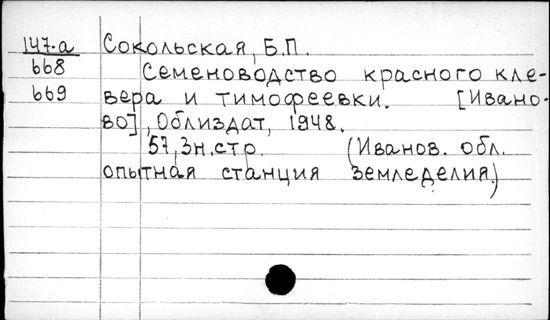 147-а Сокольская, Б.П.
668 Семеноводство красного кле-
669 вера и тимофеевки. [Ивано-
во], Облиздат, 1948.
57,3н.стр. (Иванов. обл.
опытная станция земледелия.)